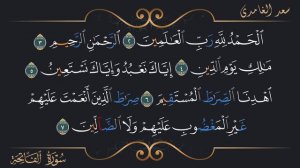 سعد الغامدي
ٱلۡحَمۡدُ لِلَّهِ رَبِّ ٱلۡعَٰلَمِينَ ٢ ٱلرَّحۡمَٰنِ ٱلرَّحِيمِ ٣
مَٰلِكِ يَوۡمِ ٱلدِّينِ ٤ إِيَّاكَ نَعۡبُدُ وَإِيَّاكَ نَسۡتَعِينُ ٥
ٱهۡدِنَا ٱلصِّرَٰطَ ٱلۡمُسۡتَقِيمَ ٦ صِرَٰطَ ٱلَّذِينَ أَنۡعَمۡتَ عَلَيۡهِمۡ
غَيۡرِ ٱلۡمَغۡضُوبِ عَلَيۡهِمۡ وَلَا ٱلضَّآلِّينَ ٧
سُورَةُ الفَاتِحَة